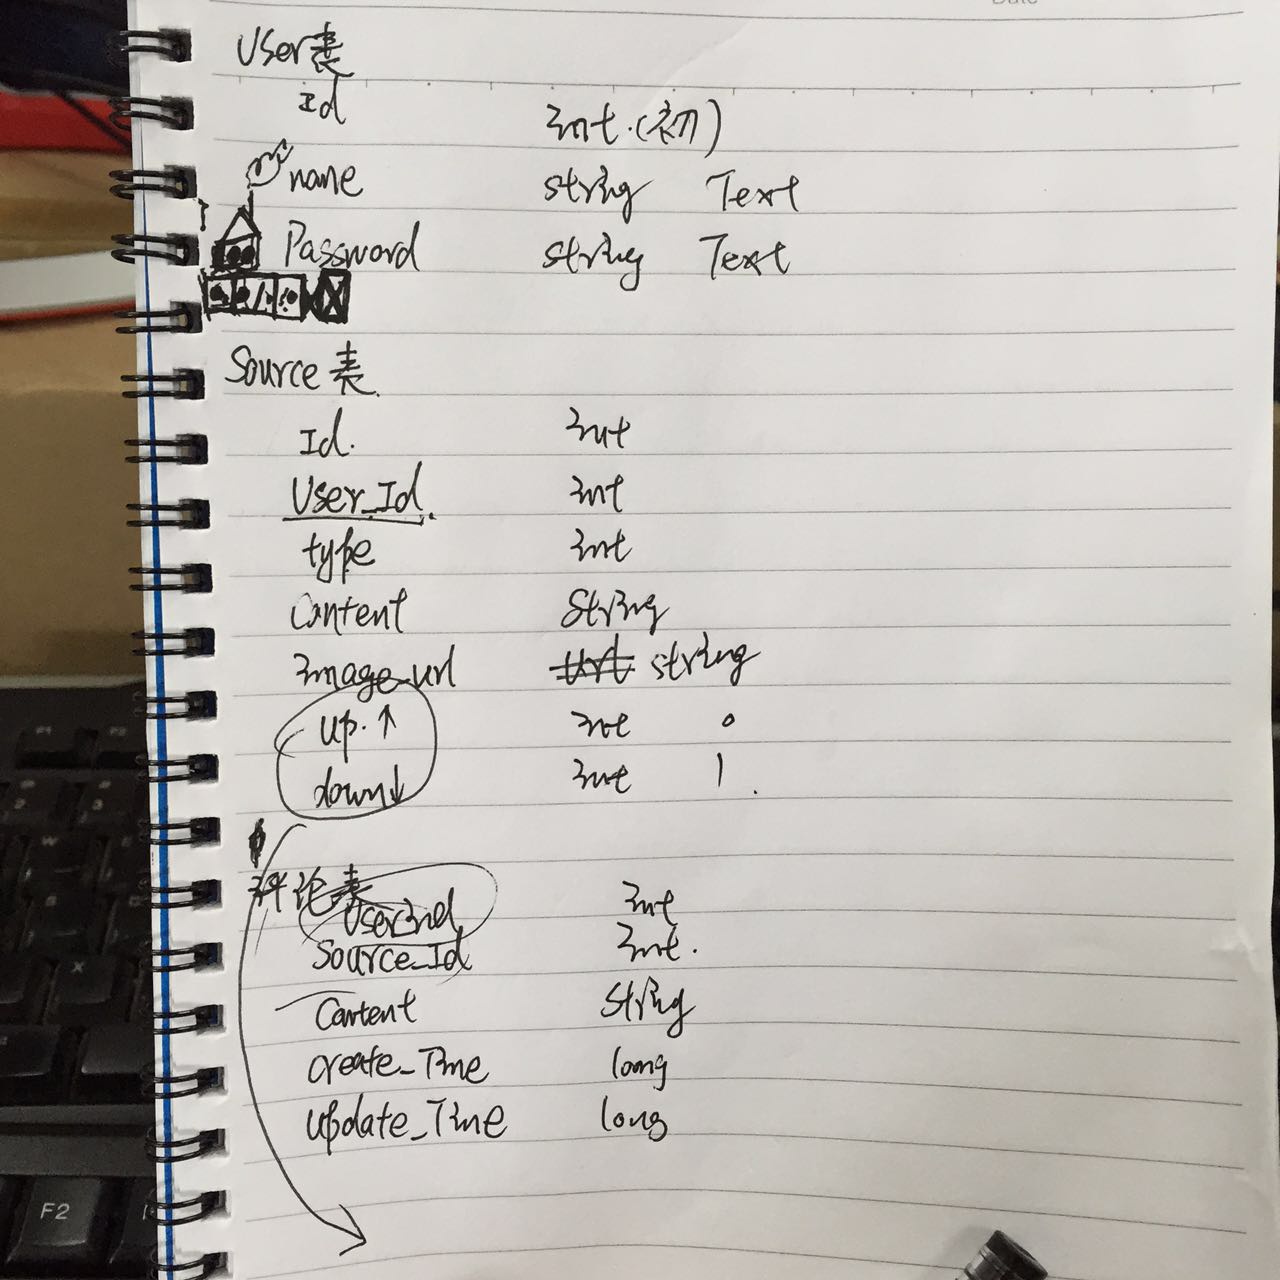 Date
User表
Id int.(初)
name string Text
Password string Text
Source表
Id. int
User_Id. int
type int
Content String
image_url string
up.↑ int 0
down↓ int 1.
评论表
UserInd int
Source_Id int.
Content String
Create_Time long
Update_Time long
F1 F2
W
X
F2